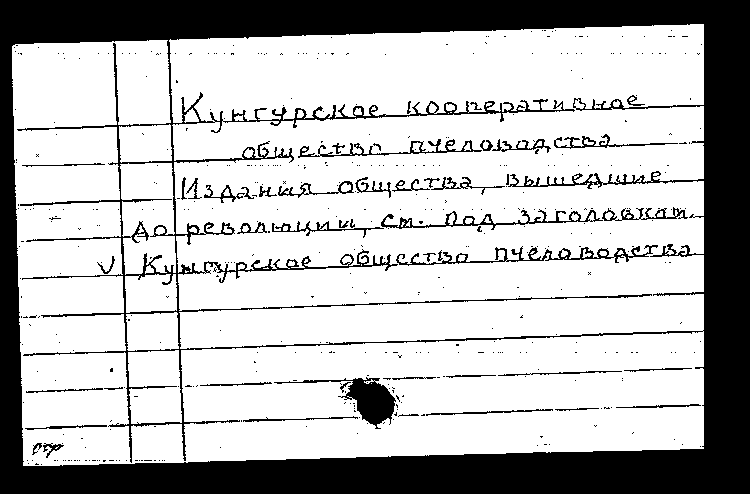 Кунгурское кооперативное
общество пчеловодства
Издания общества, вышедшие
до революции, см. под заголовкам
V Кунгурское общество пчеловодства